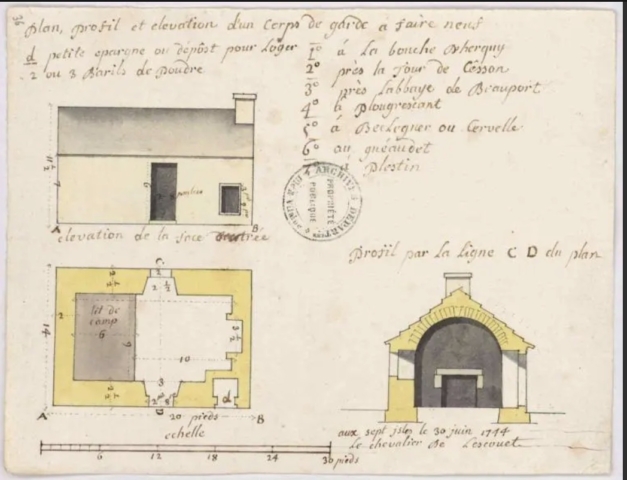 Plan, profil et elevation d'un Corps de garde à faire neuf
d petite epargne ou dépost pour Loger
2 ou 3 Barils de Poudre
1º à La bouche d'herquy
2º près la Tour de Cesson
3º près Labbaye de Beauport
4º à Plougrescant
5º à Beclegner ou Cervelle
6º au guéaudet
Plestin
elevation de la face d'entrée
ARCHIVES DÉPARTles
PROPRIÉTÉ PUBLIQUE
Profil par la Ligne C D du plan
lit de camp
6
10
d
A
B
20 pieds
echelle
6 12 18 24 30 pieds
aux sept isles le 30 juin 1744
Le chevalier De Lescouet